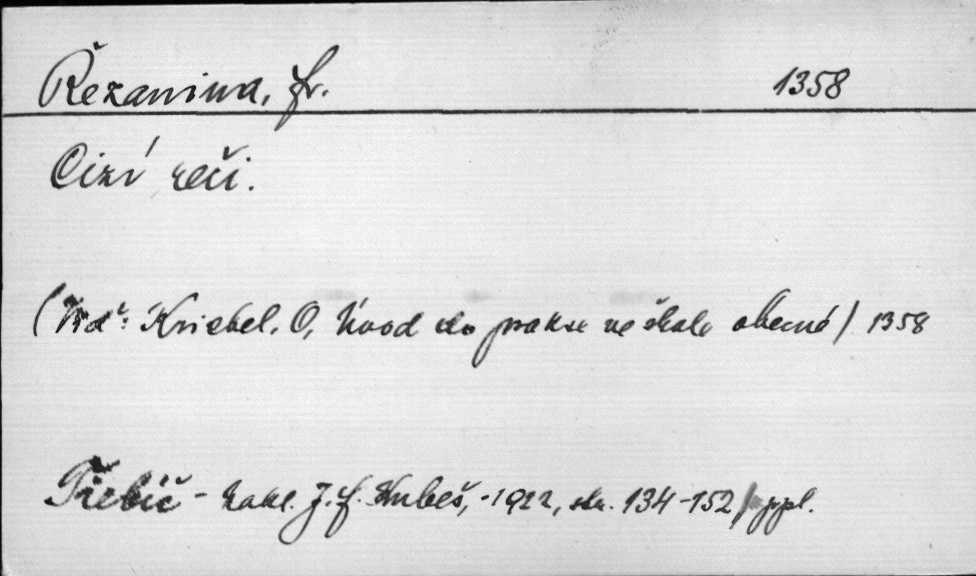 Řezanina, Fr. 1358
Cizí řeči.
(Kriebel, O, Úvod do praxe ve škole obecné) 1358
Třebíč - nakl. J. F. Kubeš, - 1922, str. 134-152, ppl.